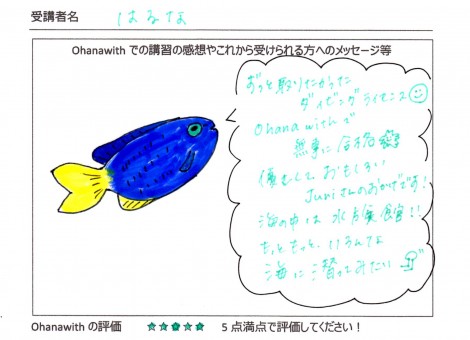 受講者名 はるな
Ohanawith での講習の感想やこれから受けられる方へのメッセージ等
ずっと取りたかった
ダイビングライセンス
Ohanawithで
無事に合格
優しくて おもしろい
Juriさんのおかげです!
海の中は 水族館!!
もっともっと、いろんな
海に 潜ってみたい
Ohanawith の評価 ★★★★★ 5 点満点で評価してください!